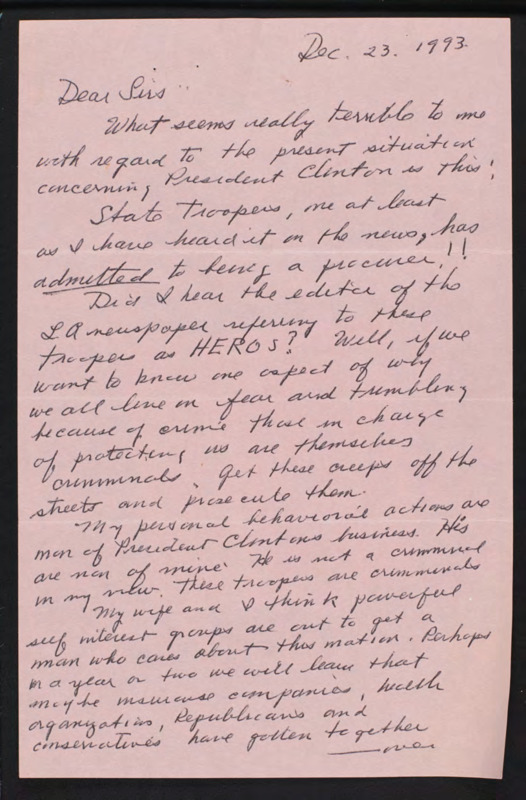 Dec. 23. 1993.
Dear Sirs
What seems really terrible to me
with regard to the present situation
concerning President Clinton is this:
State Troopers, one at least
as I have heard it on the news, has
admitted to being a procurer!!
Did I hear the editor of the
LA newspaper referring to these
troopers as HEROS? Well, if we
want to know one aspect of why
we all live in fear and trembling
because of crime those in charge
of protecting us are themselves
crimminals. Get these creeps off the
streets and prosecute them.
My personal behavioral actions are
non of President Clintons business. His
are non of mine. He is not a crimminal
in my view. These troopers are crimminals
My wife and I think powerful
self interest groups are out to get a
man who cares about this nation. Perhaps
in a year or two we will learn that
maybe insurance companies, health
organization, Republicans and
conservatives have gotten together
over